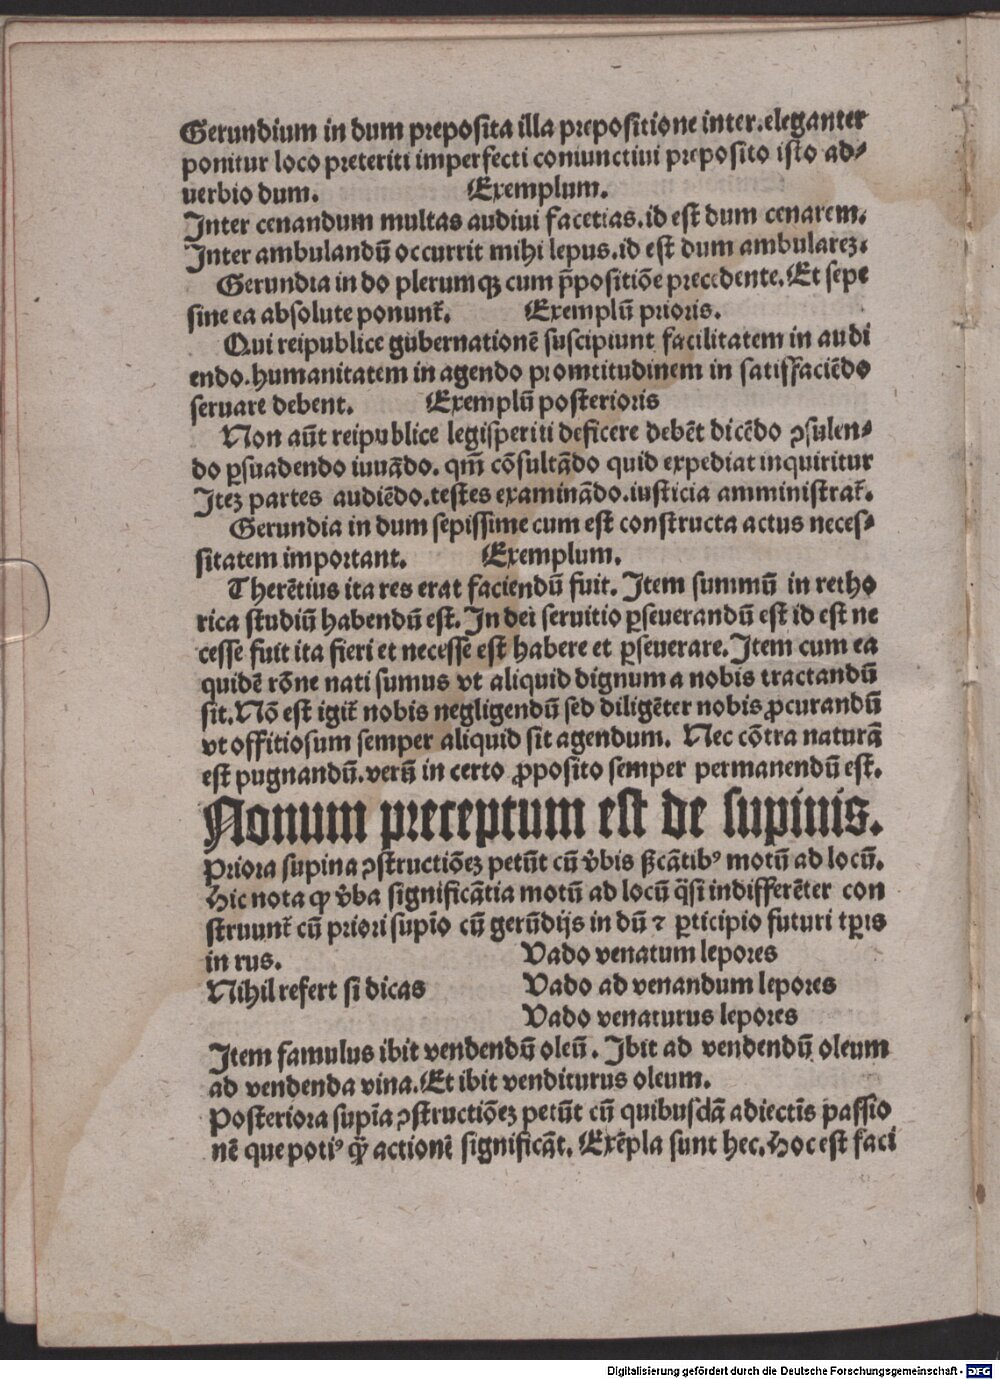 Gerundium in dum preposita illa prepositione inter.eleganter
ponitur loco preteriti imperfecti coniunctiui preposito isto ad⸗
uerbio dum. Exemplum.
Inter cenandum multas audiui facetias.id est dum cenarem.
Inter ambulandū occurrit mihi lepus.id est dum ambulareꝫ.
Gerundia in do plerumqꝫ cum p̄positiōe precedente.Et sepe
sine ea absolute ponunt᷑. Exemplū prioris.
Qui reipublice gubernationē suscipiunt facilitatem in audi
endo.humanitatem in agendo promtitudinem in satisfaciēdo
seruare debent. Exemplū posterioris
Non aūt reipublice legisperiti deficere debēt dicēdo ꝯsulen⸗
do ꝑsuadendo iuuādo. qm̄ cōsultādo quid expediat inquiritur
Iteꝫ partes audiēdo.testes examinādo.iusticia amministrat᷑.
Gerundia in dum sepissime cum est constructa actus neces⸗
sitatem important. Exemplum.
Therētius ita res erat faciendū fuit. Item summū in retho
rica studiū habendū est. In dei seruitio ꝑseuerandū est id est ne
cesse fuit ita fieri et necesse est habere et ꝑseuerare. Item cum ea
quidē rōne nati sumus vt aliquid dignum a nobis tractandū
sit. Nō est igit᷑ nobis negligendū sed diligēter nobis ꝓcurandū
vt offitiosum semper aliquid sit agendum. Nec cōtra naturā
est pugnandū.verū in certo ꝓposito semper permanendū est.
Nonum preceptum est de supinis.
Priora supina ꝯstructiōeꝫ petūt cū v̓bis ß̄cātibꝰ motū ad locū.
Hic nota ꝙ v̓ba significātia motū ad locū q̄si indifferēter con
struunt᷑ cū priori supīo cū gerūdijs in dū ⁊ ꝑticipio futuri tꝑis
in rus. Vado venatum lepores
Nihil refert si dicas Vado ad venandum lepores
Vado venaturus lepores
Item famulus ibit vendendū oleū. Ibit ad vendendū oleum
ad vendenda vina.Et ibit venditurus oleum.
Posteriora supīa ꝯstructiōeꝫ petūt cū quibusdā adiectīs passio
nē que potiꝰ q̄ꝫ actionē significāt. Exēpla sunt hec. Hoc est faci
Digitalisierung gefördert durch die Deutsche Forschungsgemeinschaft - DFG